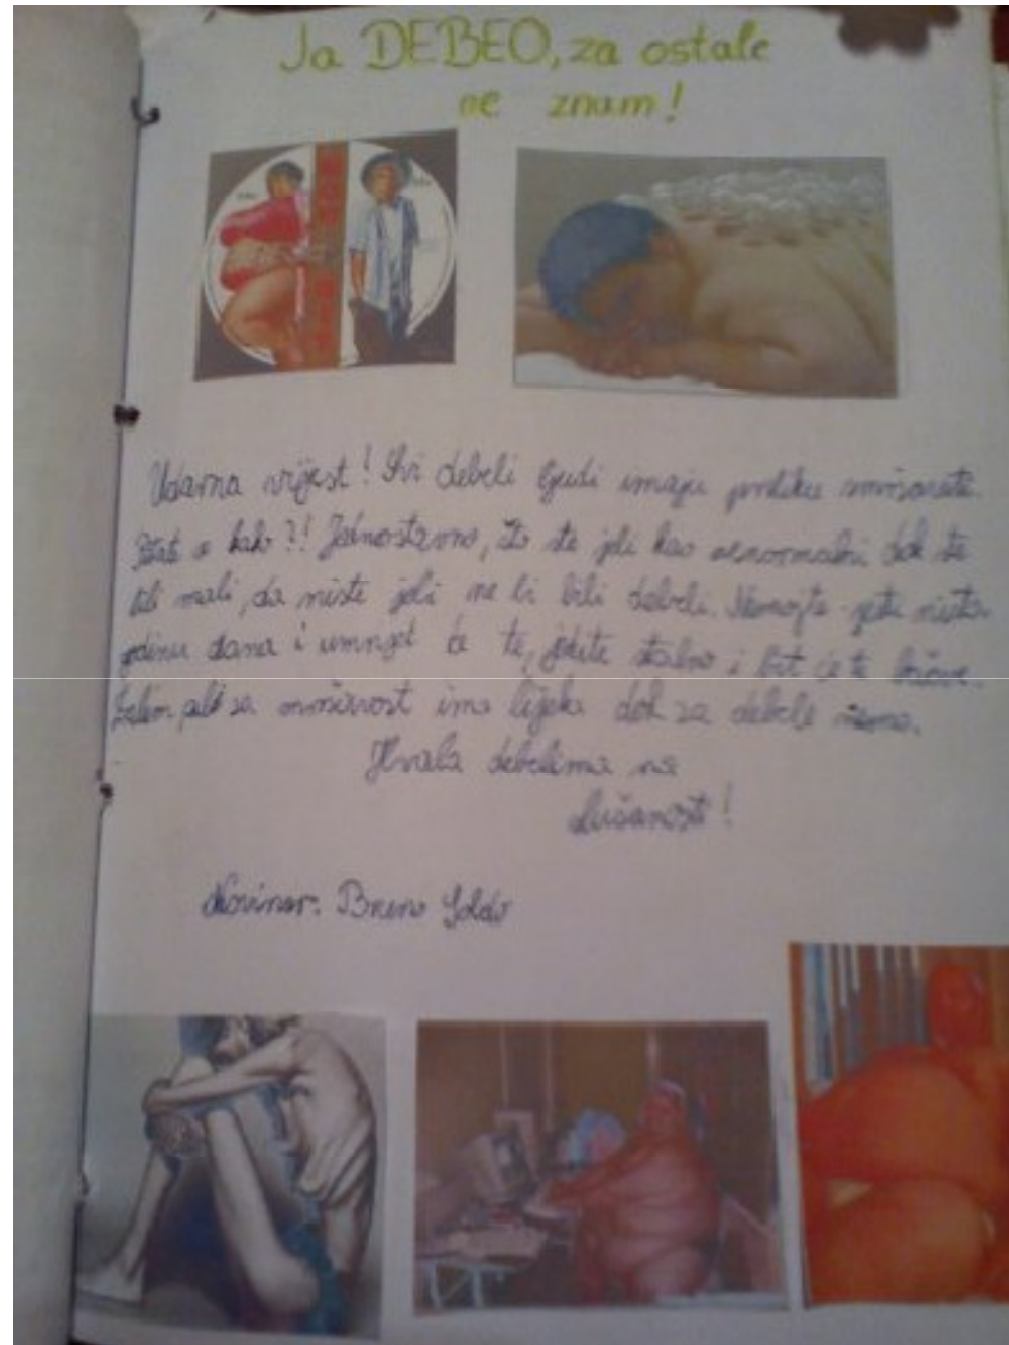 Ja DEBEO, za ostale
ne znam!
Udarna vijest! Svi debeli ljudi imaju priliku smršaviti.
Pitate se kako?! Jednostavno, što ste jeli kao nenormalni dok ste
bili mali, da niste jeli ne bi bili debeli. Nemojte jesti ništa
godinu dana i umrijet će te, jedite stalno i bit će te bačve.
mršavost ima lijeka dok za debele nema.
Hvala debelima na
slušanosti!
Novinar: Breno Soldo